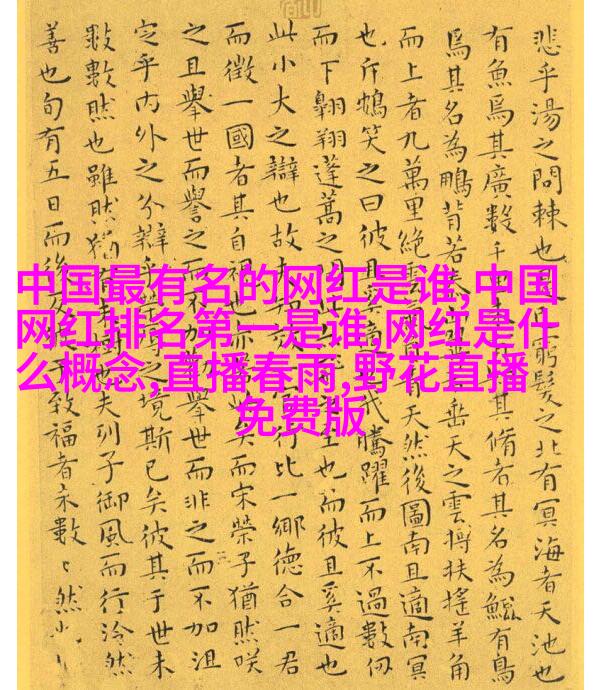 中国最有名的网红是谁,中国
网红排名第一是谁,网红是什
么概念,直播春雨,野花直播
免费版
悲乎湯之問棘也窮髮之北有冥海者天池也
有魚焉其廣數千其脩者其名為鯤有鳥
焉其名為鵬背若垂天之雲摶扶搖羊角
而上者九萬里絕雲天然後圖南且適南冥
也斥鴳笑之曰彼且騰躍而上不過數仞
而下翱翔蓬蒿之至也而彼且奚適也
此小大之辯也故行比一鄉德合一君
而徵一國者其自視也矣而宋榮子猶然咲
之且舉世而譽之而不加舉世而非之而不加沮
定乎內外之分辯乎之境斯已矣彼其于世未
數數然也雖然猶有也夫列子御風而行泠然
善也旬有五日而後于致福者未數〻然也